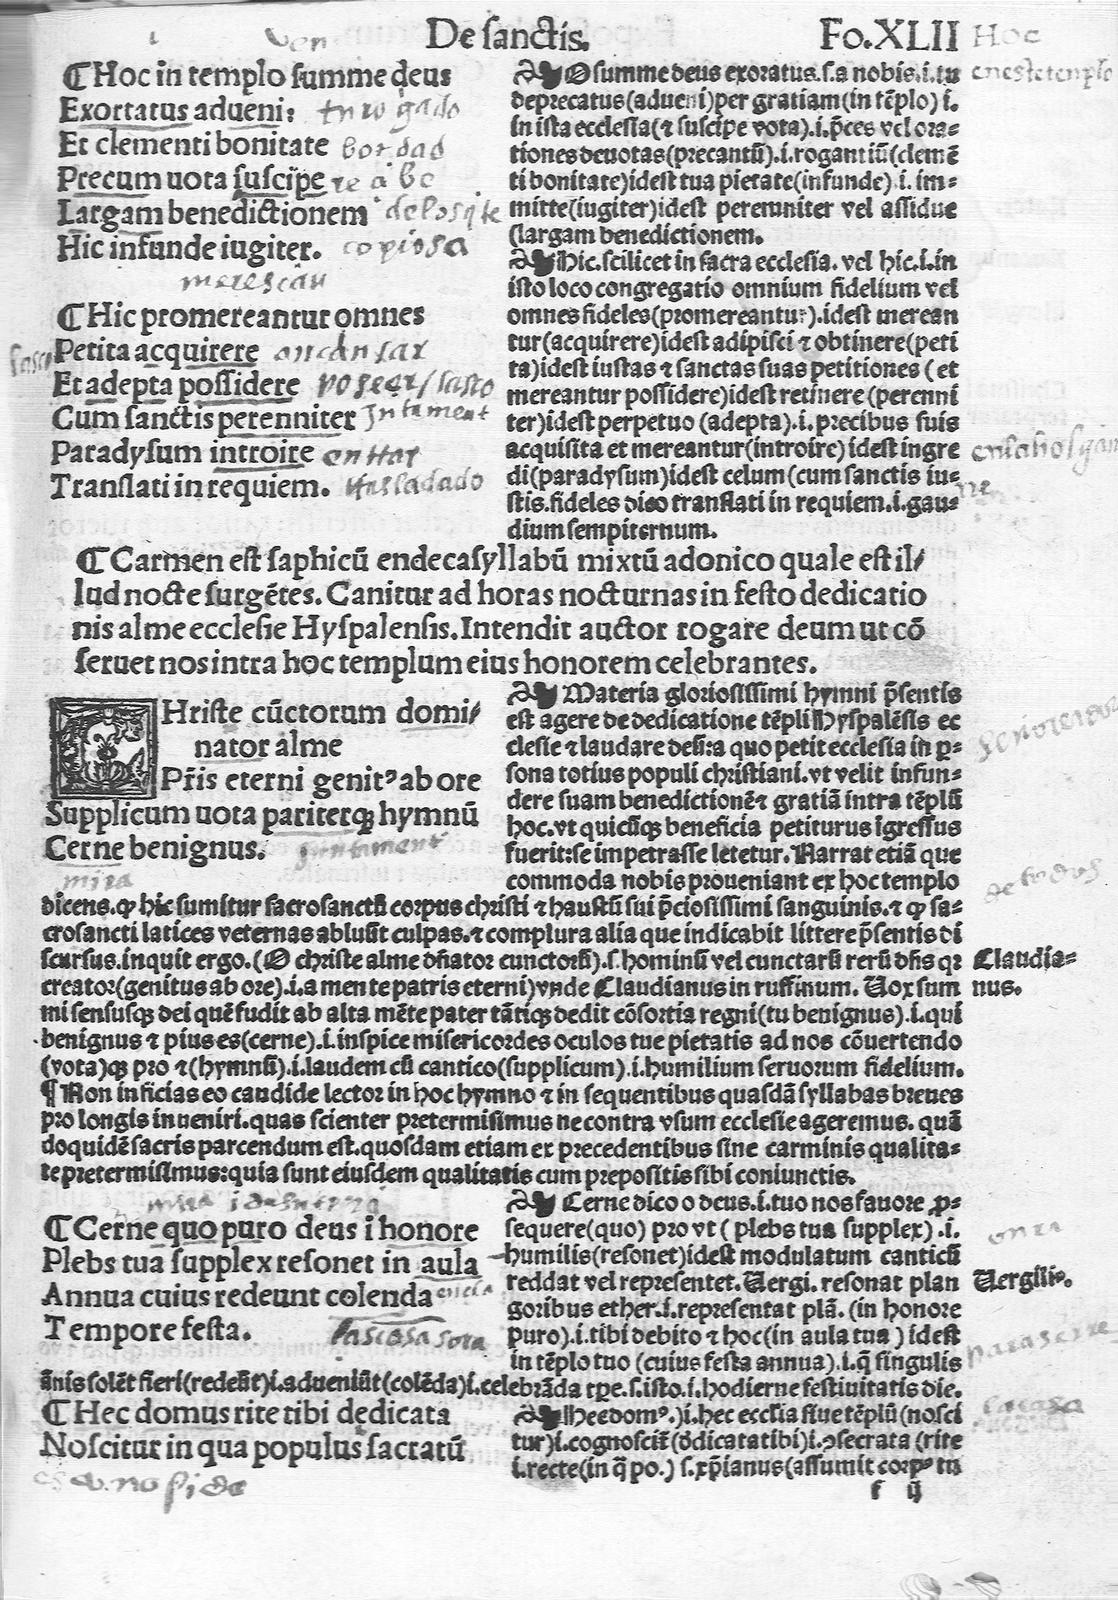 De sanctis.
Fo.XLII
¶Hoc in templo summe deus
Exortatus adueni:
Et clementi bonitate
Precum uota suscipe
Largam benedictionem
Hic infunde iugiter.
¶Hic promereantur omnes
Petita acquirere
Et adepta possidere
Cum sanctis perenniter
Paradysum introire
Translati in requiem.
O summe deus exoratus.s.a nobis.i.tu
deprecatus(adueni)per gratiam(in tēplo)i.
in ista ecclesia(⁊ suscipe vota).i.p̄ces vel ora=
tiones deuotas(precantū).i.rogantiū(clemē
ti bonitate)idest tua pietate(infunde).i.im=
mitte(iugiter)idest peremniter vel assidue
(largam benedictionem.
Hic.scilicet in sacra ecclesia. vel hic.i.in
isto loco congregatio omnium fidelium vel
omnes fideles(promereantur).idest merean
tur(acquirere)idest adipisci ⁊ obtinere(peti
ta)idest iustas ⁊ sanctas suas petitiones (et
mereantur possidere)idest retinere (perenni
ter)idest perpetuo (adepta).i.precibus suis
acquisita et mereantur(introire)idest ingre
di(paradysum)idest celum(cum sanctis iu=
stis.fideles dico translati in requiem.i.gau=
dium sempiternum.
¶Carmen est saphicū endecasyllabū mixtū adonico quale est il/
lud nocte surgētes. Canitur ad horas nocturnas in festo dedicatio
nis alme ecclesie Hyspalensis.Intendit auctor rogare deum ut cō
seruet nos intra hoc templum eius honorem celebrantes.
CHriste cūctorum domi/
nator alme
Pr̄is eterni genitꝰ ab ore
Supplicum uota pariterqꝫ hymnū
Cerne benignus.
Materia gloriosissimi hymni p̄sentis
est agere de dedicatione tēpli Hyspalēsis ec
clesie ⁊ laudare desi:a quo petit ecclesia in p̱=
sona totius populi christiani.vt velit infun=
dere suam benedictionē⁊ gratiā intra tēplū
hoc.vt quicūqꝫ beneficia petiturus igressus
fuerit:se impetrasse letetur. Narrat etiā que
commoda nobis proueniant ex hoc templo
dicens.ꝙ hic sumitur sacrosanctū corpus christi ⁊ haustū sui p̄ciosissimi sanguinis.⁊ ꝙ sa=
crosancti latices veternas abluūt culpas.⁊ complura alia que indicabit littere p̄sentis di
scursus.inquit ergo.(O christe alme dn̄ator cunctorū).s.hominū vel cunctarū rerū dn̄s qr
creator(genitus ab ore).i.a mente patris eterni)vnde Claudianus in ruffinum. Uox sum
mi sensusqꝫ dei quē fudit ab alta mēte pater tātiqꝫ dedit cōsortia regni(tu benignus).i.qui
benignus ⁊ pius es(cerne).i.inspice misericordes oculos tue pietatis ad nos cōuertendo
(vota)qꝫ pro ⁊(hymnū).i.laudem cū cantico(supplicum).i.humilium seruorum fidelium.
¶Non inficias eo candide lector in hoc hymno ⁊ in sequentibus quasdā syllabas breues
pro longis inueniri.quas scienter pretermisimus ne contra vsum ecclesie ageremus. quā
doquidē sacris parcendum est.quosdam etiam ex precedentibus sine carminis qualita=
te pretermisimus:quia sunt eiusdem qualitatis cum prepositis sibi coniunctis.
Claudia=
nus.
¶Cerne quo puro deus i honore
Plebs tua supplex resonet in aula
Annua cuius redeunt colenda
Tempore festa.
Cerne dico o deus.i.tuo nos fauore ꝓ=
sequere(quo) pro vt ( plebs tua supplex) .i.
humilis(resonet)idest modulatum canticū
reddat vel representet. Uergi. resonat plan
goribus ether.i.representat plā. (in honore
puro).i.tibi debito ⁊ hoc(in aula tua )idest
in tēplo tuo (cuius festa annua).i.q̄ singulis
ānis solēt fieri(redeūt)i.adueniūt(colēda)i.celebrāda tp̄e.s.isto.i.hodierne festiuitatis die.
Uergili⁹.
¶Hec domus rite tibi dedicata
Noscitur in qua populus sacratū
Hec domꝰ.)i.hec ecclesia siue tēplū(nosci
tur)i.cognoscit̄(dedicata tibi)i.ↄsecrata (rite
i.recte(in q̄ po.) s.xp̄ianus(assumit corpꝰ tu
f ij